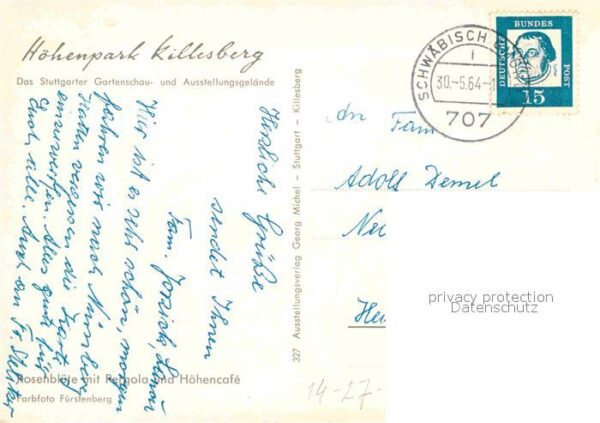 Höhenpark Killesberg
Das Stuttgarter Gartenschau- und Ausstellungsgelände
Herzliche Grüße
sendet Ihnen
Fam.
Hier ist es sehr schön, morgen
fahren wir nach Nürnberg
Hatten vergessen die Karte
einzuwerfen. Alles gute für
Euch alle. Auch an Fr.
Rosenblüte mit Pergola und Höhencafé
Farbfoto Fürstenberg
327 Ausstellungsverlag Georg Michel - Stuttgart - Killesberg
SCHWÄBISCH
30.-5.64-1
707
DEUTSCHE
BUNDES
POST
15
An Fam
Adolf Demel
Ne
He
privacy protection
Datenschutz
14-27-